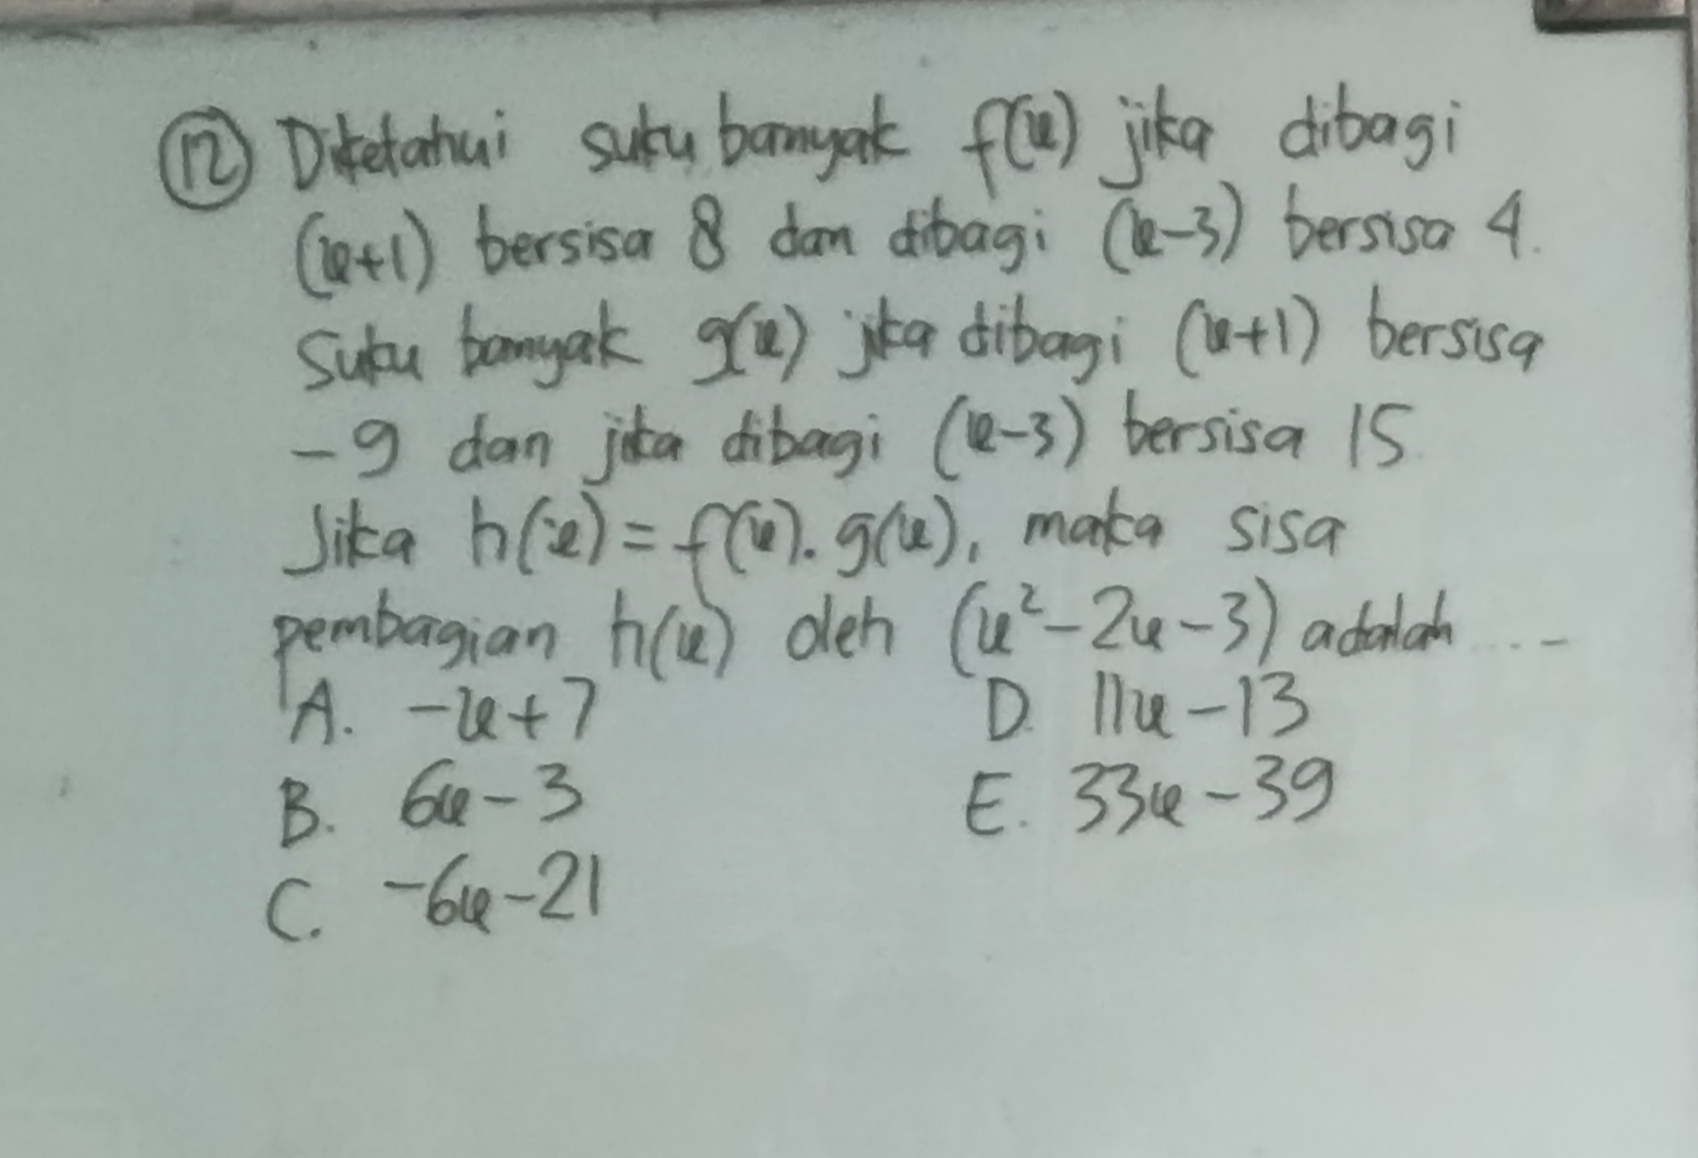 12 Diketahui suku banyak f(x) jika dibagi
(x+1) bersisa 8 dan dibagi (x-3) bersisa 4.
Suku banyak g(x) jika dibagi (x+1) bersisa
-9 dan jika dibagi (x-3) bersisa 15
Jika h(x) = f(x). g(x), maka sisa
pembagian h(x) oleh (x²-2x-3) adalah ....
A. -x+7 D. 11x-13
B. 6x-3 E. 33x-39
C. -6x-21